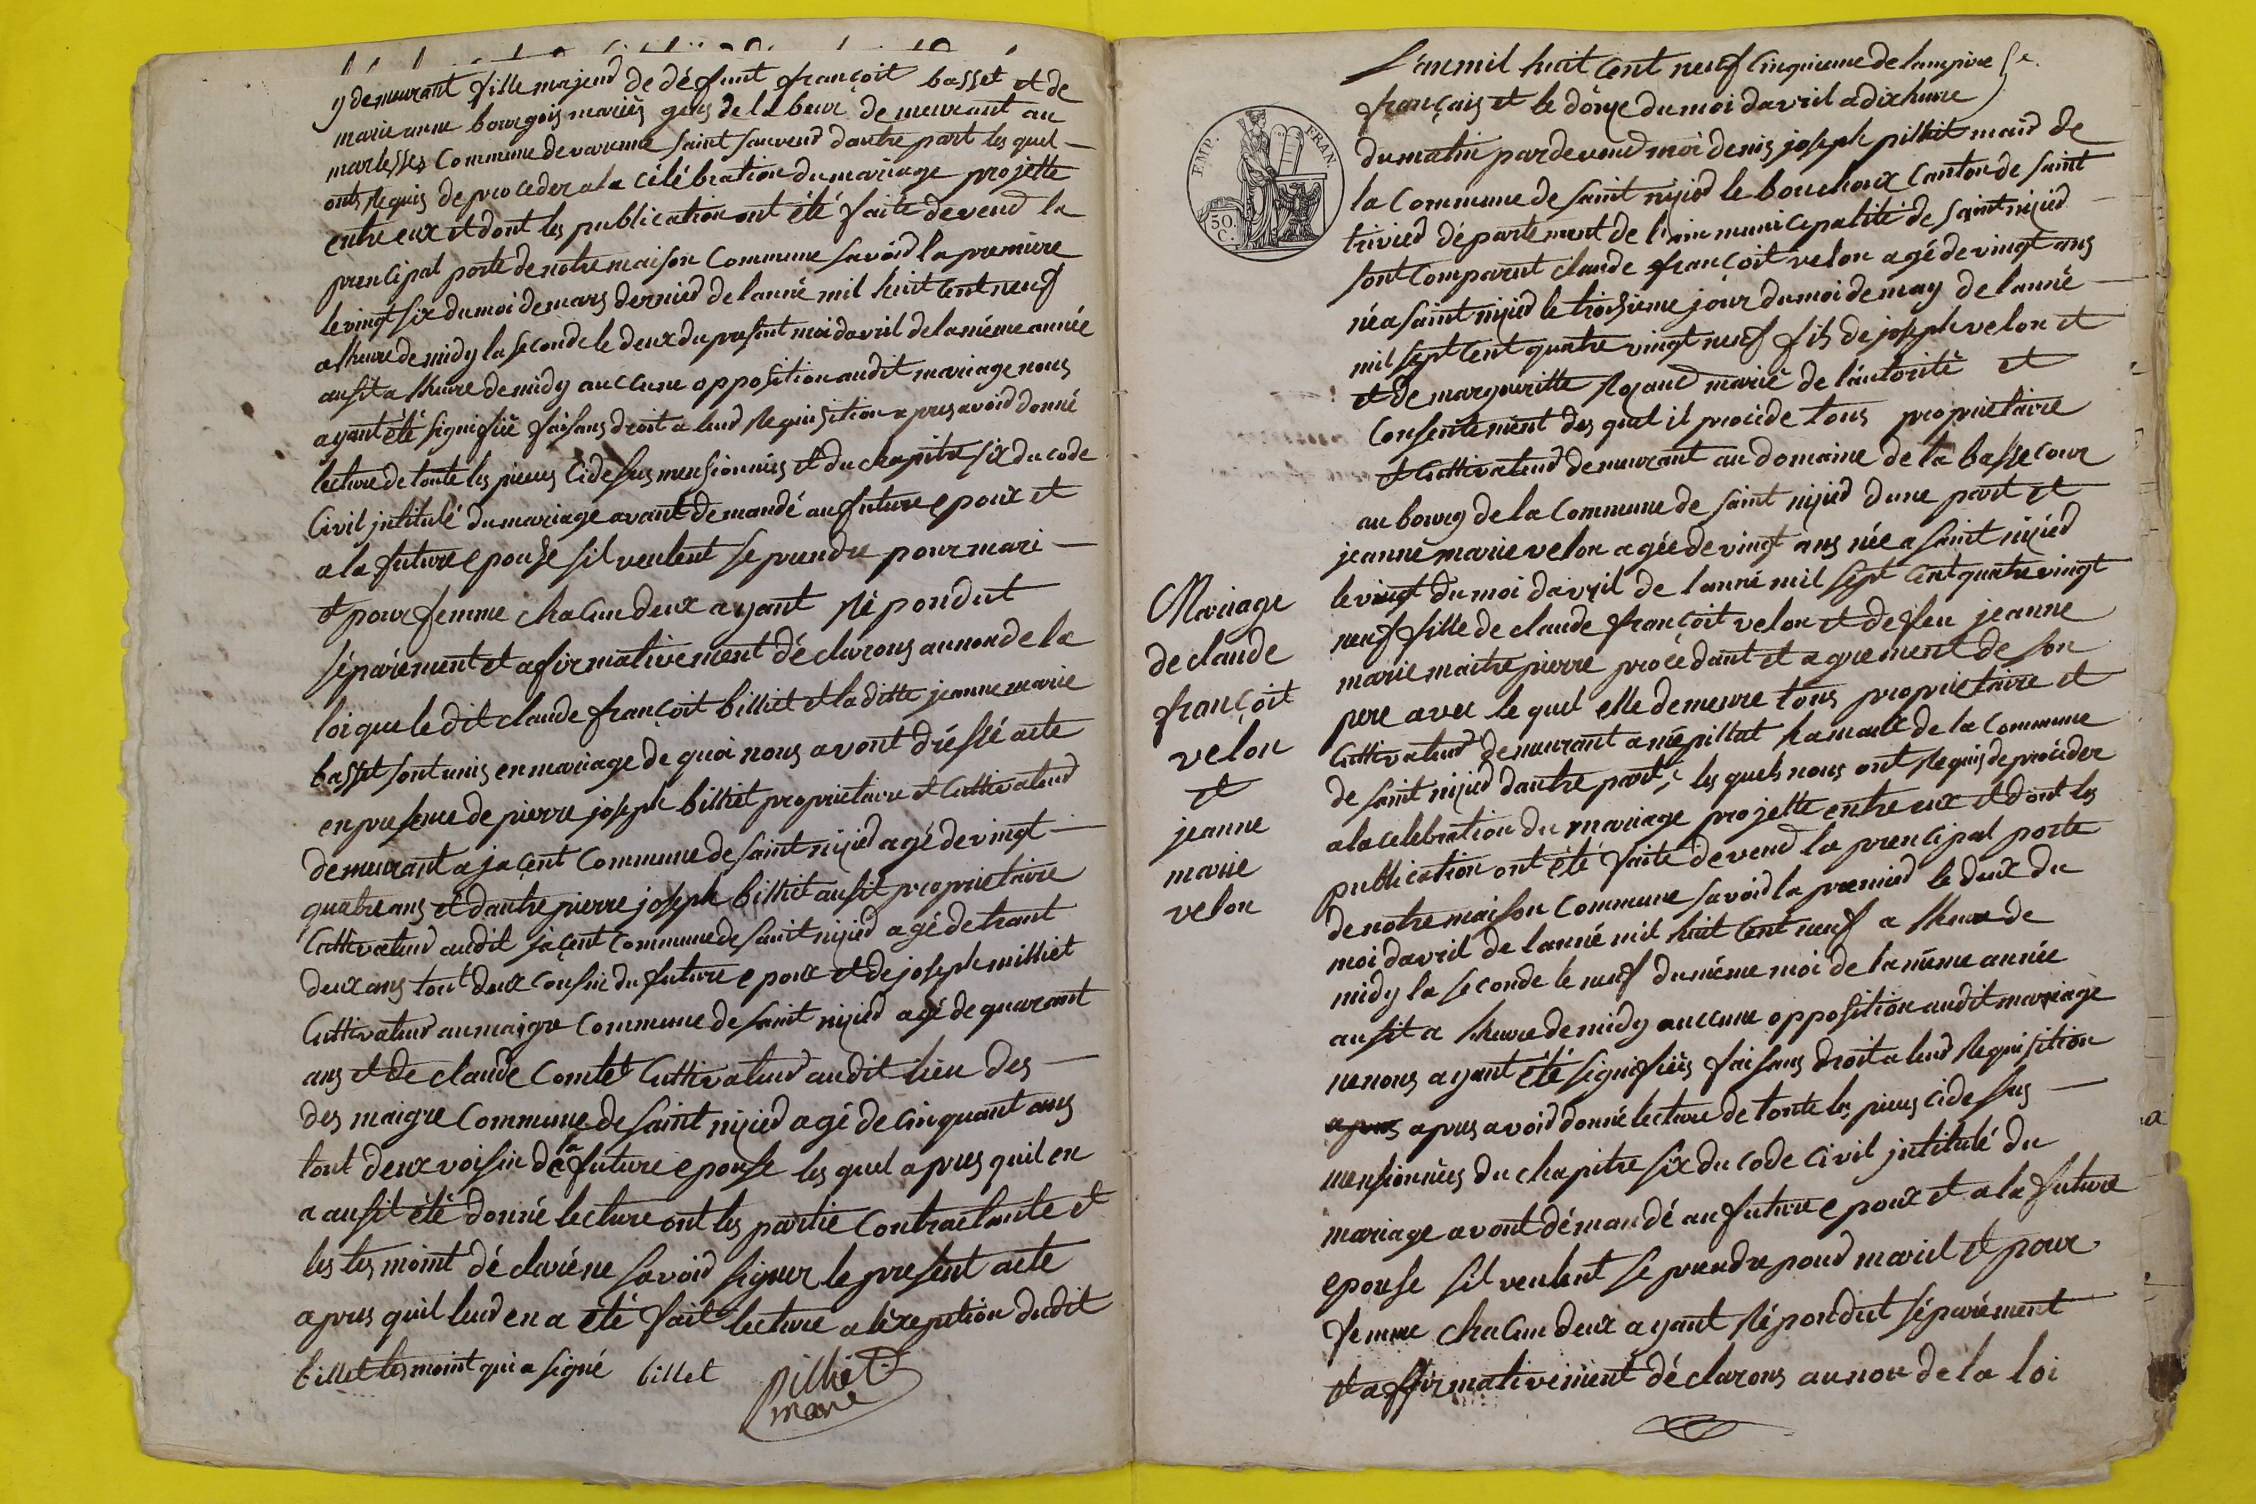 y demeurant fille majeur de défunt françoit basset et de
marie anne bourgois mariés gens de labeur demeurant au
marlesses Commune de varenne saint sauveur dautre part les quel
onts Requis de proceder a la célébration du mariage projette
entre eux et dont les publication ont été faite devend la
prencipal porte de notre maison Commune savoir la premiere
le vingt six du moi de mars dernier de lanné mil huit Cent neuf
a lheure de midy la seconde le deux du present moi davril de la même année
ausit a lheure de midy auccune opposition audit mariage nous
ayant été signifiié faisans droit a leur Requisition apres avoir donné
lecture de toute les pieces Cidesus mensionnées et du chapitre six du code
Civil jntitulé du mariage avant demandé au future epoux et
a la future epouse sil veulent se prendre pour mari
et pour femme chacun deux ayant Répondut
séparément et afirmativement déclarons au non de la
loi que le dit claude françoit billiet et la ditte jeanne marie
basset sont unis en mariage de quoi nous avont dréssé acte
en presence de pierre joseph billiet propriétaire et Cultivateur
demeurant a jaçent Commune de saint nizier agé de vingt
quatre ans et dautre pierre joseph billiet ausit propriétaire
Cultivateur audit jaçent Commune de saint nizier agé de trant
deux ans tout deux Cousin du future epoux et de joseph milliet
Cultivateur au maigre Commune de saint nizier agé de quarant
ans et de claude Comtet Cultivateur audit lieu des
des maigre Commune de saint nizier agé de Cinquant ans
tout deux voisin de la future epouse les quel apres quil en
a ausit été donné lecture ont les partie Contractante et
les tes moint déclaré ne savoir signer le present acte
apres quil leur en a été fait lecture a lexeption dudit
billet tes moint qui a signé billet
pilliet
maire
L'an mil huit Cent neuf Cinquieme de lampire
français et le douze du moi davril a dix heure
EMP. FRAN.
50
C.
du matin par devend moi denis joseph pilliet mair de
la Commune de saint nizier le bouchoux Canton de saint
trivier département de l'ain municipalité de saint nizier
sont Comparut claude françoit velon agé de vingt ans
né a saint nizier le troisieme jour du moi de may de lanné
mil sept Cent quatre vingt neuf fils de joseph velon et
et de margueritte Royand marié de lautorité et
Consentement des quel il procède tous propriétaire
et Cultivateur demeurant au domaine de la basse cour
au bourg de la Commune de saint nizier dune part et
jeanne marie velon agée de vingt ans née a saint nizier
le vingt du moi davril de lanné mil sept Cent quatre vingt
neuf fille de claude françoit velon et de feu jeanne
marie maitrepierre procédant et agrement de son
pere avec le quel elle demeure tous propriétaire et
Cultivateur demeurant a mépillat hamaux de la Commune
de saint nizier dautre part, les quels nous ont Requis de procéder
a la celebration du mariage projette entre eux et dont les
publication ont été faite devend la prencipal porte
de notre maison Commune savoir la premier le deux du
moi davril de lanné mil huit Cent neuf a lheure de
midy la seconde le neuf du même moi de la même année
ausit a lheure de midy auccune opposition audit mariage
ne nous ayant été signifiiés faisans droit a leur Requisition
apres apres avoir donné lecture de toute les pieces cidessus
mensionnées du chapitre six du code Civil jntitulé du
mariage avont démandé au future epoux et a la future
epouse sil veulent se prendre pour mariet et pour
femme chacun deux ayant Répondut séparément
et affirmativement déclarons au non de la loi
Mariage
de claude
françoit
velon
et
jeanne
marie
velon